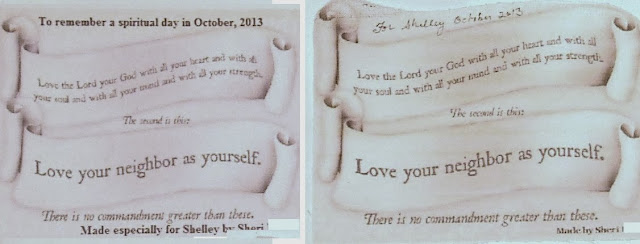 To remember a spiritual day in October, 2013
Love the Lord your God with all your heart and with all
your soul and with all your mind and with all your strength.
The second is this:
Love your neighbor as yourself.
There is no commandment greater than these.
Made especially for Shelley by Sheri
For Shelley October 2013
Love the Lord your God with all your heart and with all
your soul and with all your mind and with all your strength.
The second is this:
Love your neighbor as yourself.
There is no commandment greater than these.
Made by Sheri